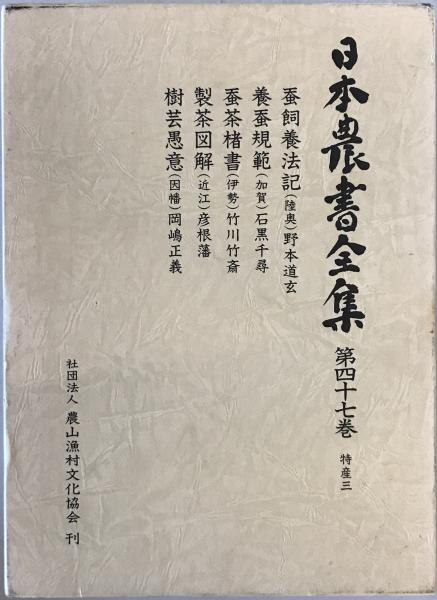 日本農書全集 第四十七巻 特産三
蚕飼養法記(陸奥)野本道玄
養蚕規範(加賀)石黒千尋
蚕茶楮書(伊勢)竹川竹斎
製茶図解(近江)彦根藩
樹芸愚意(因幡)岡嶋正義
社団法人 農山漁村文化協会 刊